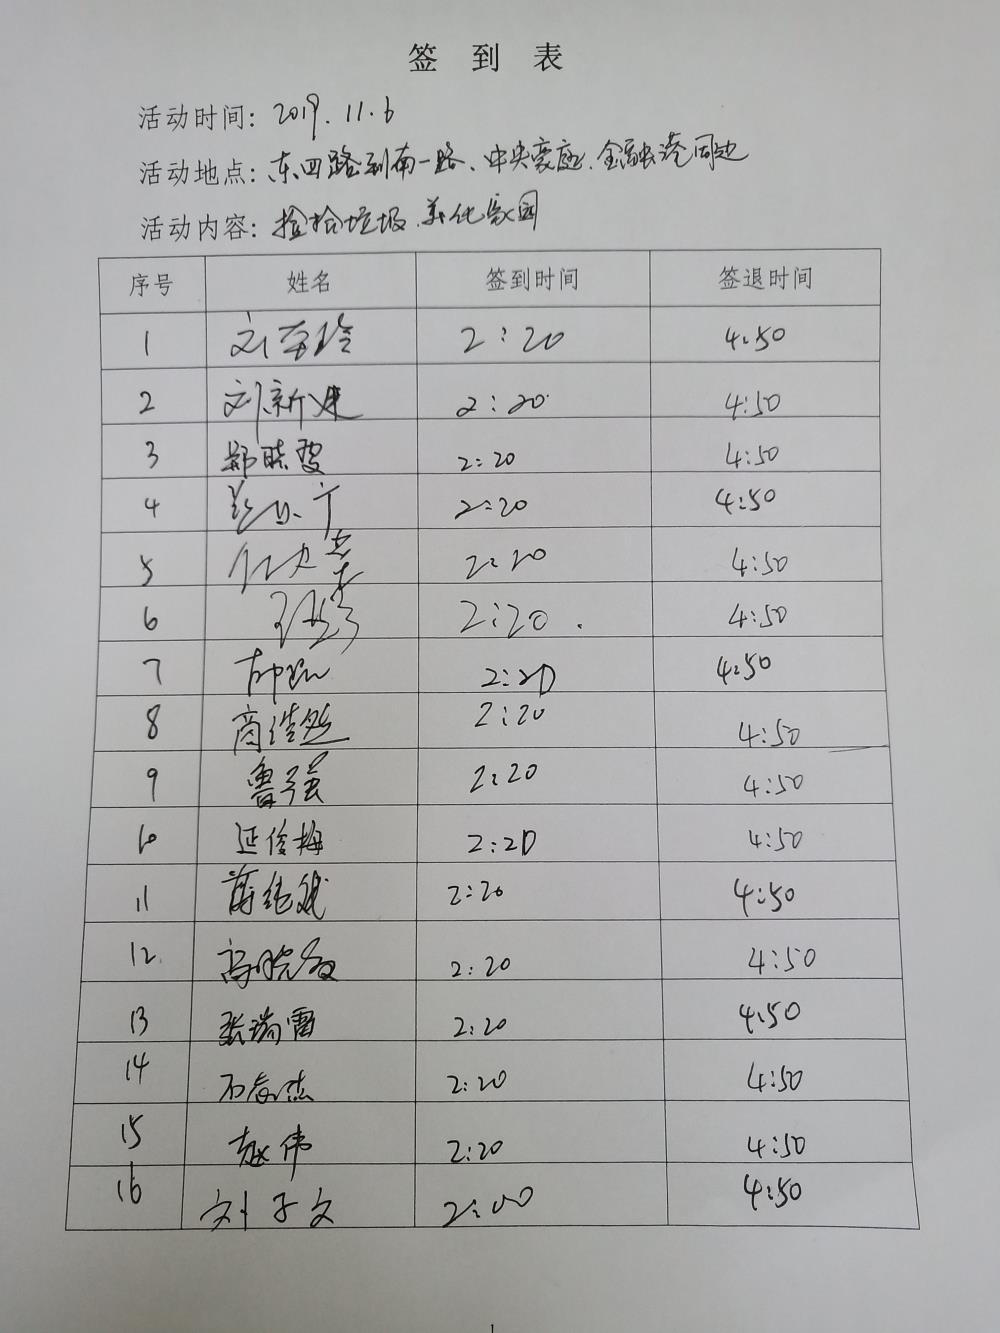 签 到 表
活动时间: 2019.11.6
活动地点: 东四路到南一路、中央豪庭、金融港周边
活动内容: 捡拾垃圾 美化家园
序号 姓名 签到时间 签退时间
1 刘 2:20 4:50
2 刘新建 2:20 4:50
3 郑晓雯 2:20 4:50
4 2:20 4:50
5 2:20 4:50
6 2:20 . 4:50
7 2:20 4:50
8 商浩然 2:20 4:50
9 鲁强 2:20 4:50
10 延俊梅 2:20 4:50
11 2:20 4:50
12 高晓 2:20 4:50
13 张瑞雷 2:20 4:50
14 石 杰 2:20 4:50
15 赵伟 2:20 4:50
16 刘子文 2:00 4:50
1